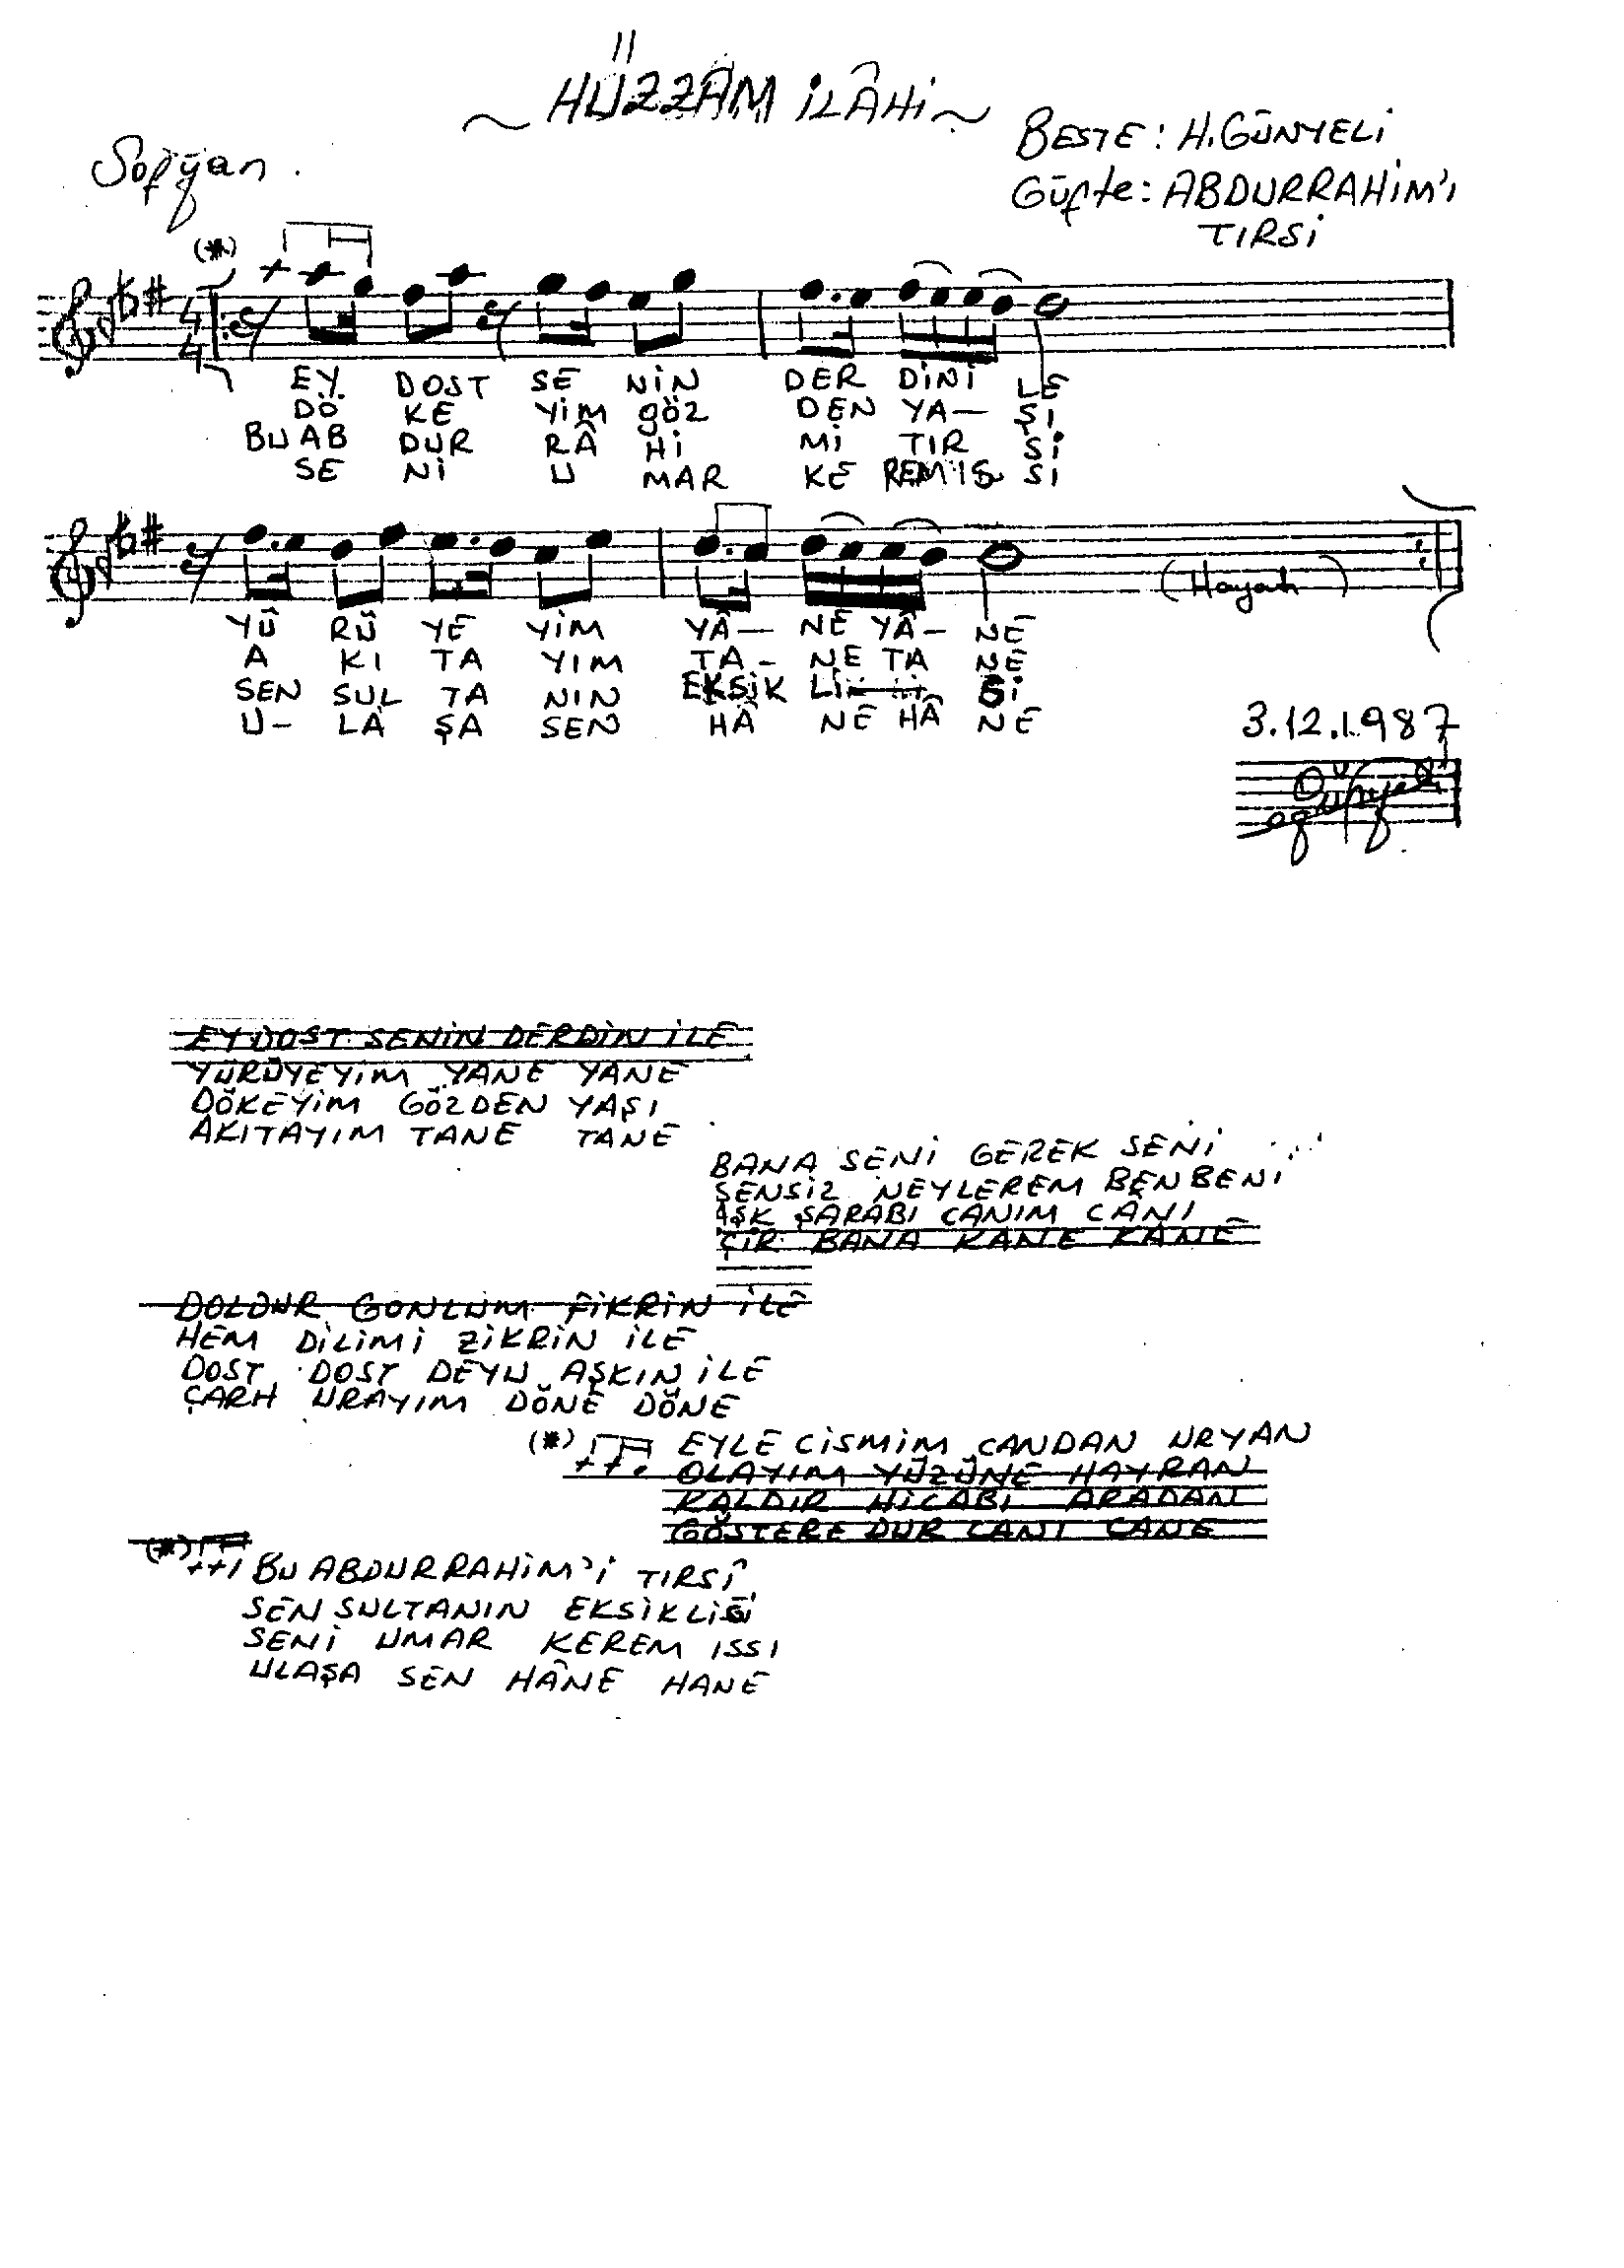 ~ HÜZZÂM İLÂHİ ~
Sofyan.
BESTE: H. GÜNYELİ
Güfte: ABDURRAHİM'İ
TIRSİ
(*)
4
4
EY DOST SE NİN DER DİNİ LE
DÖ KE YİM GÖZ DEN YA— ŞI
BU AB DUR RÂ Hİ Mİ TIR Sİ
SE Nİ U MAR KE REM IS SI
(Hayah)
YÜ RÜ YE YİM YÂ— NE YÂ— NE
A KI TA YIM TA- NE TA NE
SEN SUL TA NIN EKSİK Lİ Ğİ
U- LA ŞA SEN HÂ NE HÂ NE
3.12.1987
EY DOST SENİN DERDİN İLE
YÜRÜYEYİM YANE YANE
DÖKEYİM GÖZDEN YAŞI
AKITAYIM TANE TANE
BANA SENİ GEREK SENİ
SENSİZ NEYLEREM BEN BENİ
AŞK ŞARABI CANIM CÂNI
İÇİR BANA KANE KANE
DOLDUR GONLUM FİKRİN İLE
HEM DİLİMİ ZİKRİN İLE
DOST DOST DEYU AŞKIN İLE
ÇARH URAYIM DÖNE DÖNE
(*) EYLE CİSMİM CANDAN URYAN
OLAYIM YÜZÜNE HAYRAN
KALDIR HİCABI ARADAN
GÖSTERE DUR CANI CANE
(*) BU ABDURRAHİM'İ TIRSÎ
SEN SULTANIN EKSİKLİĞİ
SENİ UMAR KEREM ISSI
ULAŞA SEN HÂNE HANE